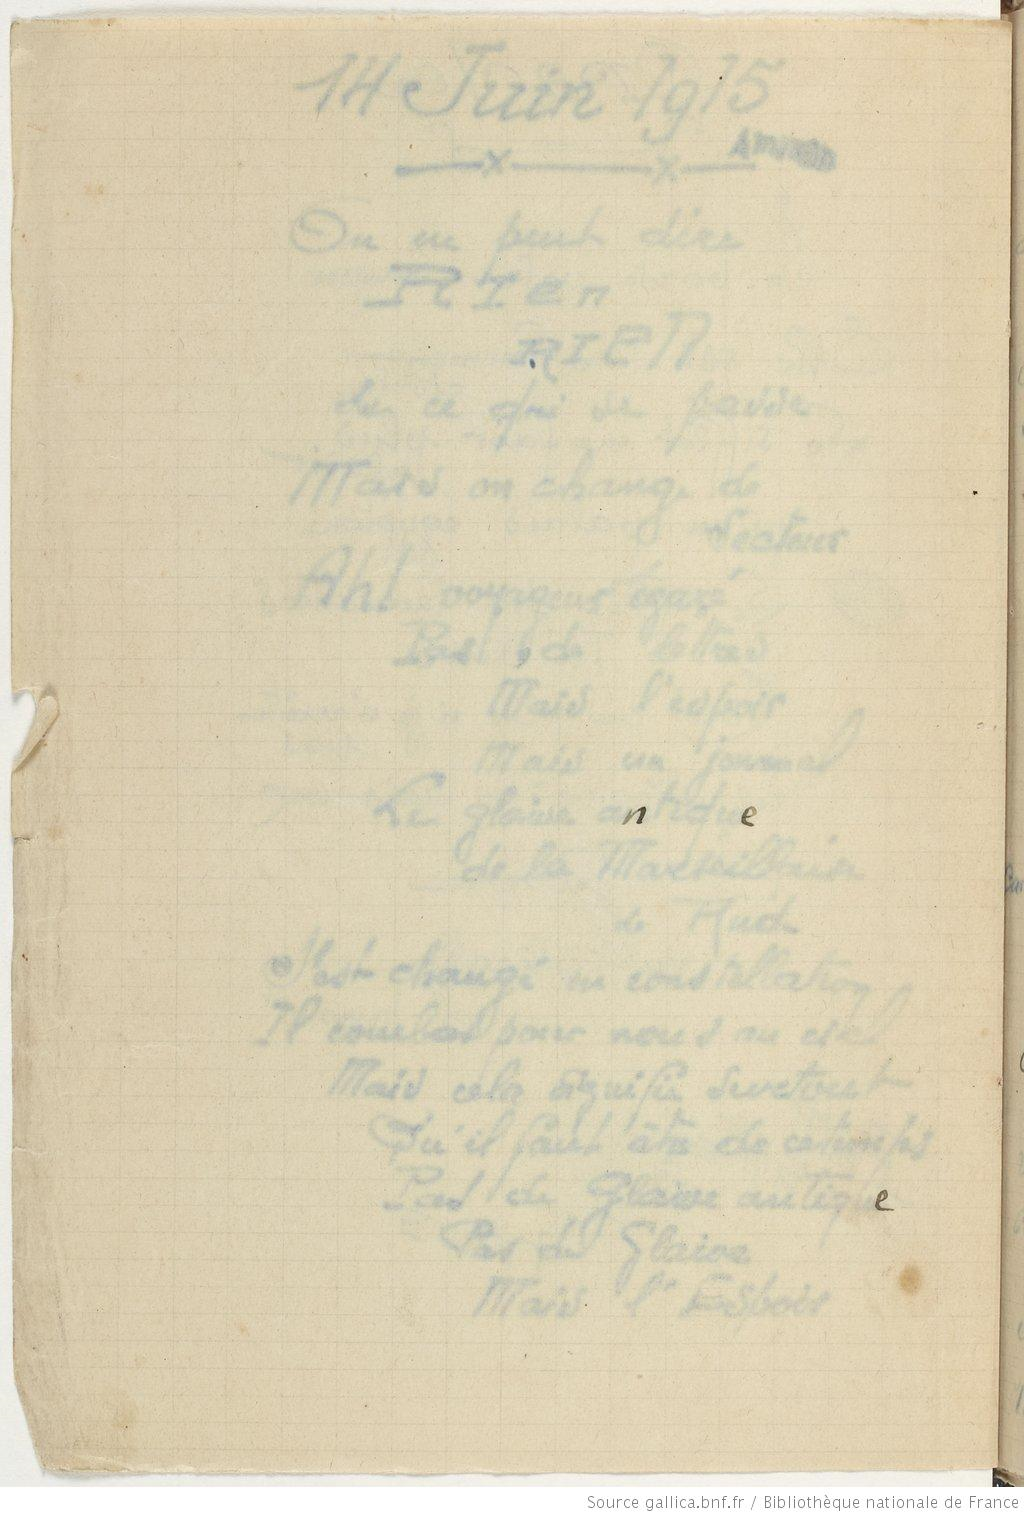 14 Juin 1915
On ne peut dire
RIEn
RIEN
de ce qui se passe
Mais on change de
Secteur
Ah! voyageur égaré
Pas de lettres
Mais l'espoir
Mais un journal
Le glaive antique
de la Marseillaise
de Rude
S'est changé en constellation
Il combat pour nous au ciel
Mais cela signifie surtout
Qu'il faut être de ce temps
Pas de Glaive antique
Pas de Glaive
Mais l'Espoir
Source gallica.bnf.fr / Bibliothèque nationale de France